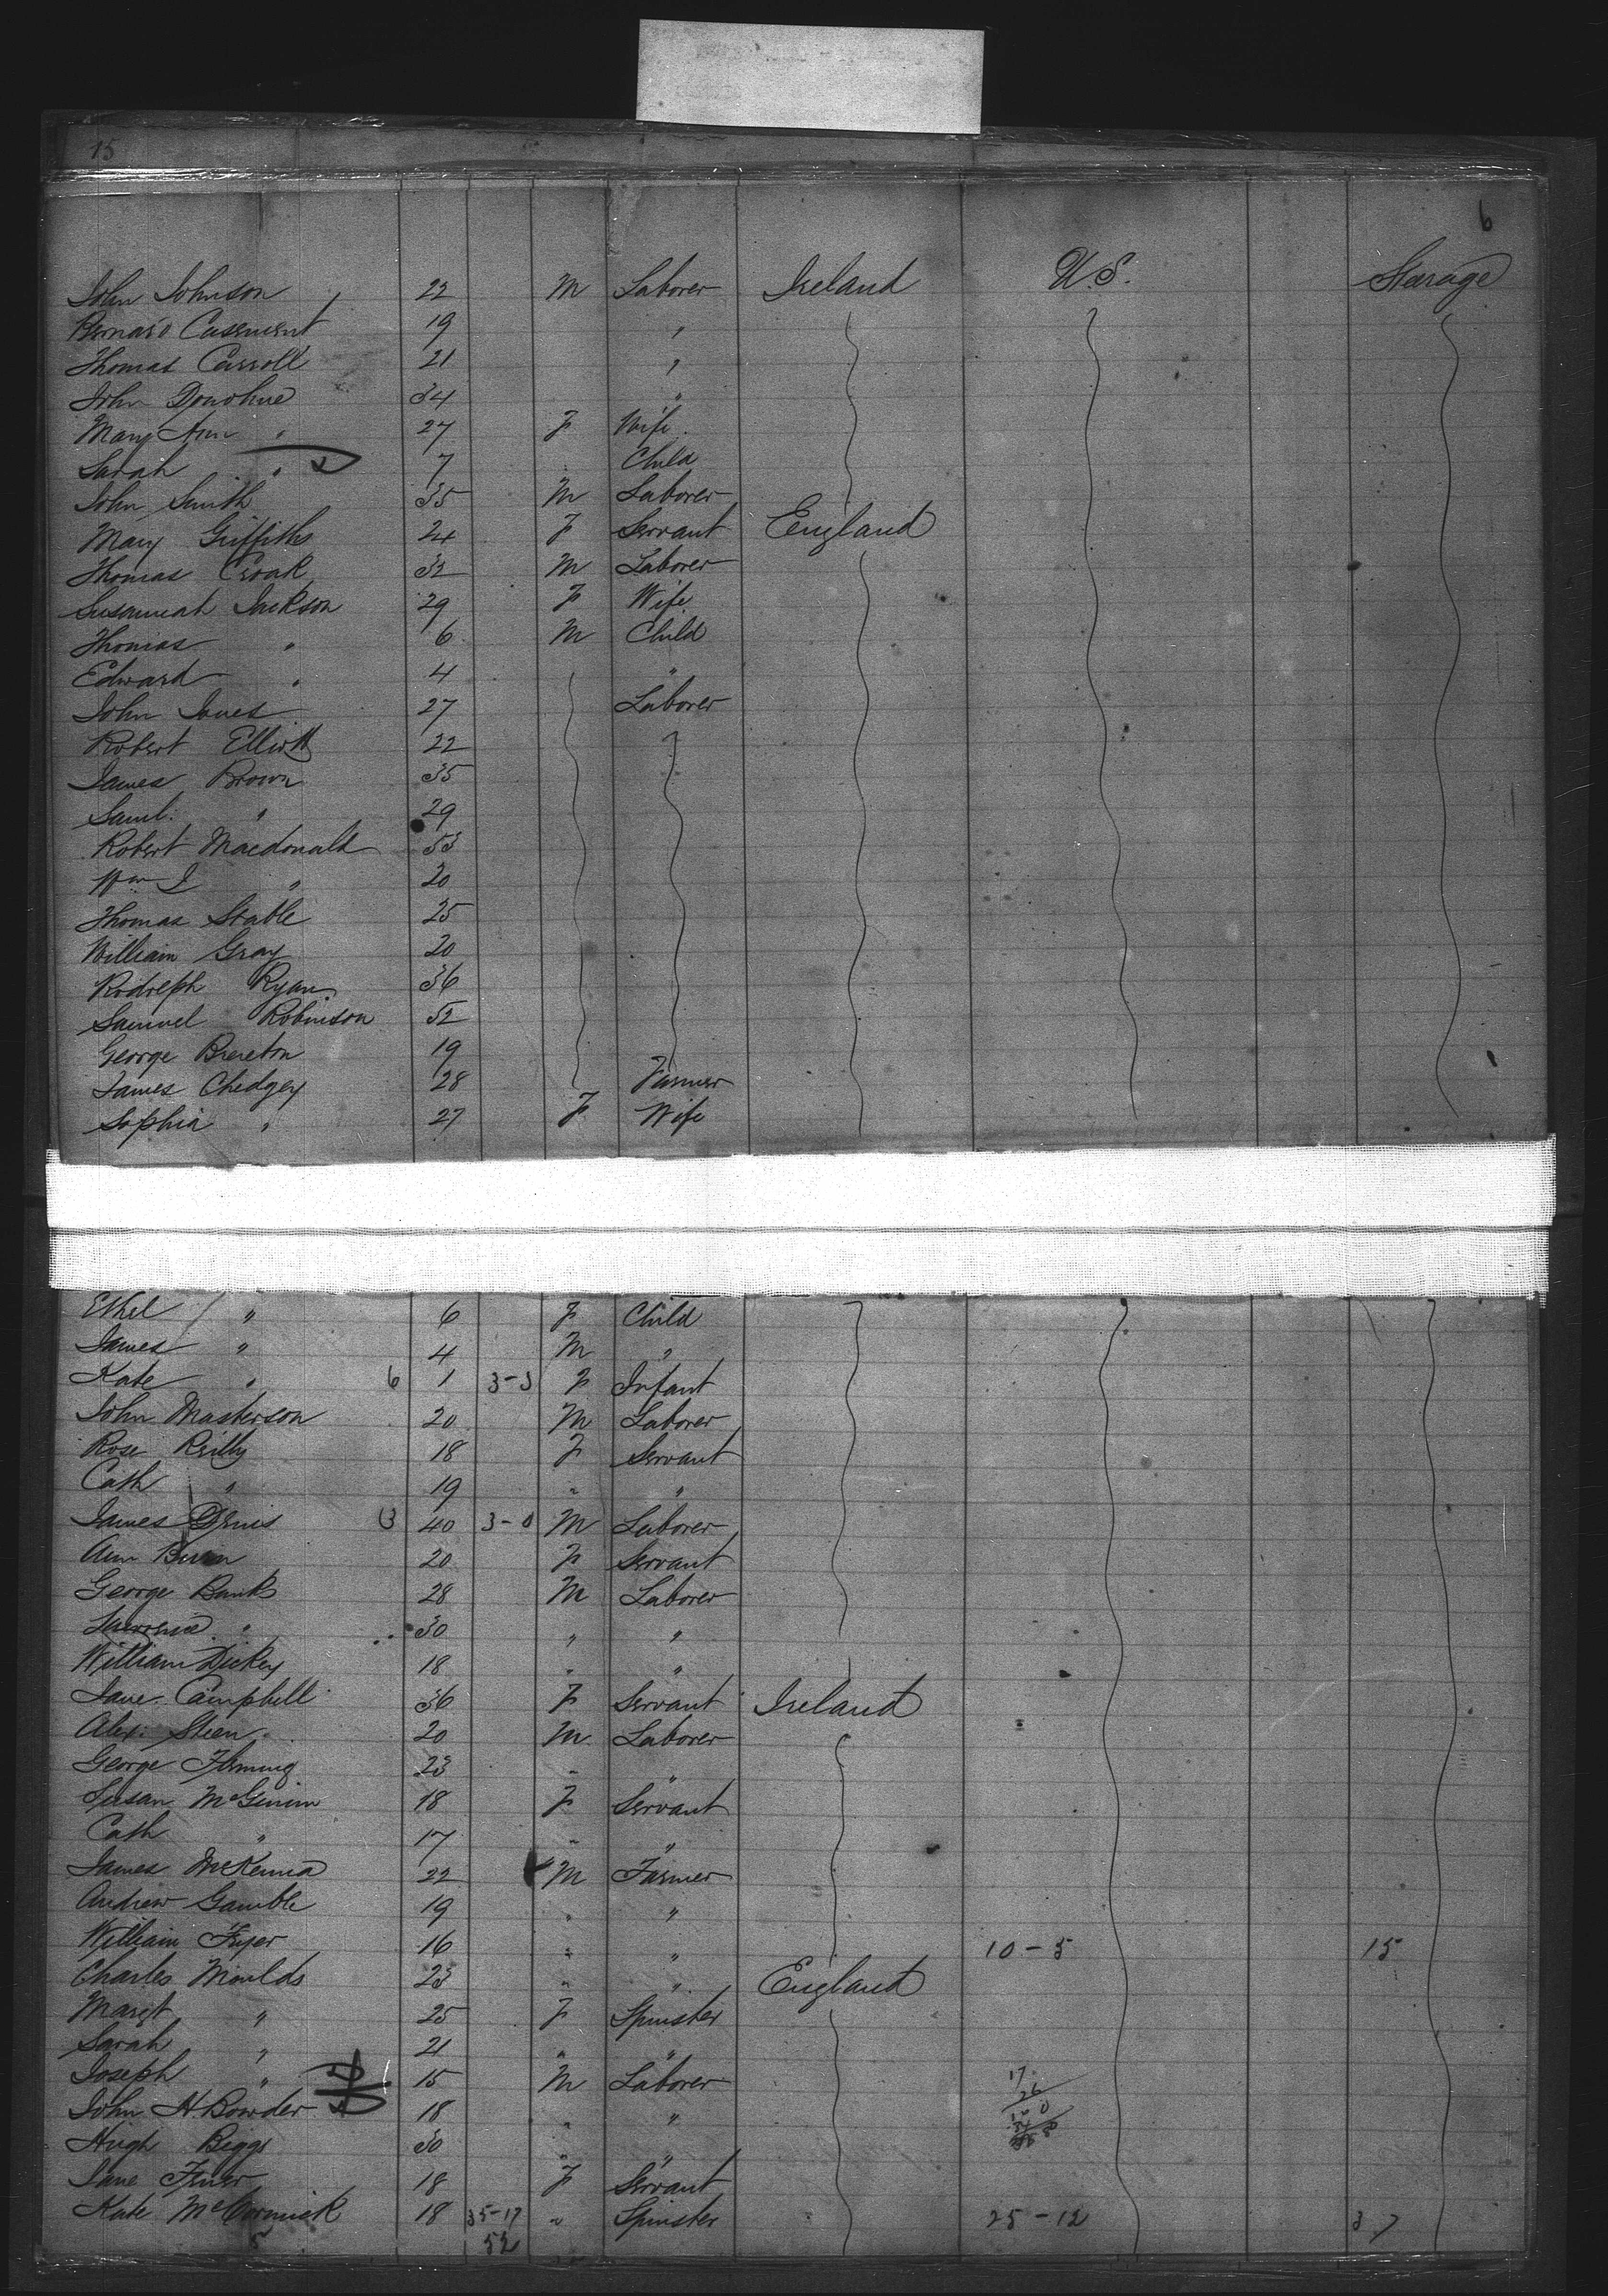 15
6
John Johnson 22 M Laborer Ireland U.S. Starage
Bernard Casement 19 "
Thomas Carroll 21 "
John Donohue 34 "
Mary Ann " 27 F Wife
Sarah " 7 " Child
John Smith 35 M Laborer
Mary Griffiths 24 F Servant England
Thomas Croak 32 M Laborer
Susannah Jackson 29 F Wife
Thomas " 6 M Child
Edward " 4 "
John Jones 27 Laborer
Robert Elliott 22
James Brown 35
Saml. " 29
Robert Macdonald 53
Wm J " 20
Thomas Stable 25
William Gray 20
Rodolph Ryan 36
Samuel Robinson 52
George Brereton 19
James Chedgey 28 Farmer
Sophia " 27 F Wife
Ethel " 6 F Child
James " 4 M "
Kate " 6 1 3-3 F Infant
John Masterson 20 M Laborer
Rose Reilly 18 F Servant
Cath " 19 " "
James Denis 3 40 3-0 M Laborer
Ann Burn 20 F Servant
George Banks 28 M Laborer
Lawrence " 30 " "
William Dickey 18 " "
Jane Campbell 36 F Servant Ireland
Alex. Steen 20 M Laborer
George Fleming 23 " "
Susan McGinim 18 F Servant
Cath " 17 " "
James McKenna 22 M Farmer
Andrew Gamble 19 " "
William Fryer 16 " " 10-5 15
Charles Moulds 23 " " England
Margt " 25 F Spinster
Sarah " 21 " "
Joseph " 15 M Laborer 17
John H. Bowder 18 " " 26
Hugh Biggs 30 " "
Jane 18 F Servant
Kate McCormick 18 35-17 " Spinster 25-12 37
5 52